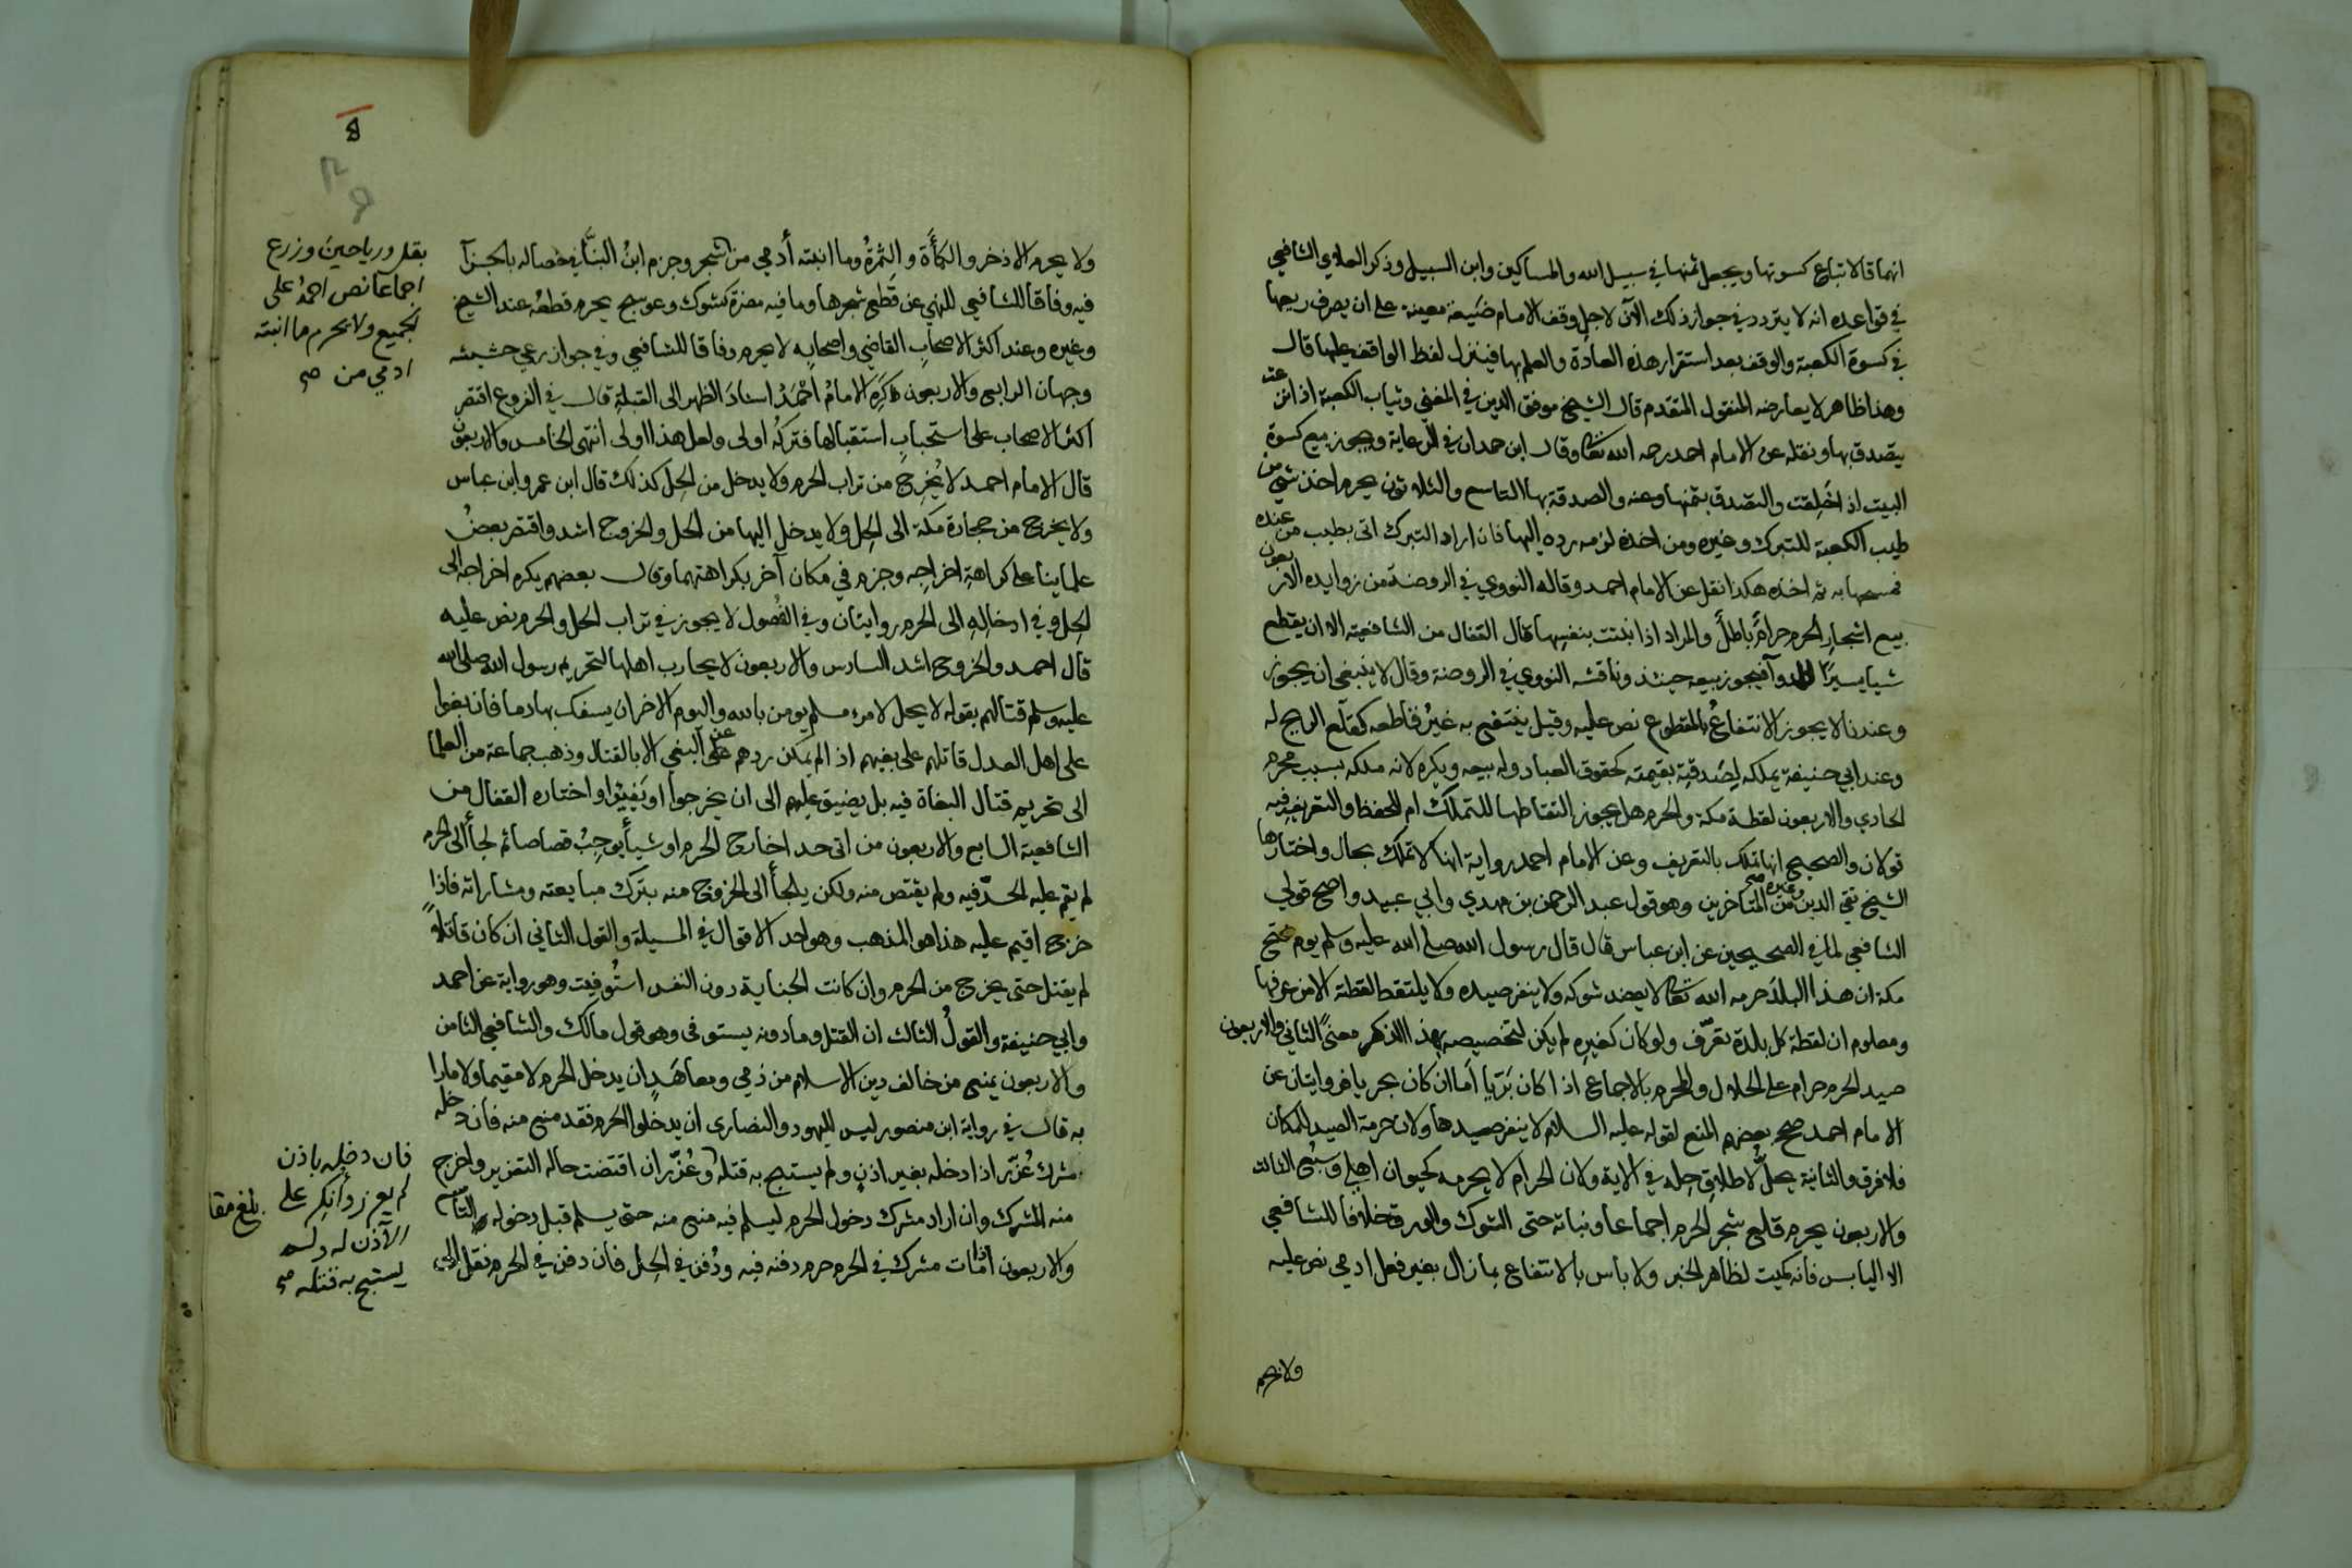 انهما قالا تباع كسوتها ويجعل ثمنها في سبيل الله والمساكين وابن السبيل وذكر العلاي الشافعي
في قواعده انه لا يتردد في جواز ذلك الآن لاجل وقف الامام ضَيعة معينة على ان يصرف ريعها
في كسوة الكعبة والوقف بعد استقرار هذه العادة والعلم بها فينزل لفظ الواقف عليها قال
وهذا ظاهر لا يعارضه المنقول المتقدم قال الشيخ موفق الدين في المغني وثياب الكعبة اذا نزعت
يتصدق بها ونقله عن الامام احمد رحمه الله تعالى وقال ابن حمدان في الرعاية ويجوز بيع كسوة
البيت اذا خَلِقت والتصدق بثمنها وعنه والصدقة بها التاسع والثلاثون يحرم اخذ شي من
طيب الكعبة للتبرك وغيره ومن اخذه لزمه رده اليها فان اراد التبرك اتى بطيب من عنده
فمسحها به ثم اخذه هكذا نقل عن الامام احمد وقاله النووي في الروضة من زوايده الاربعون
بيع اشجار الحرم حرامٌ باطلٌ والمراد اذا نبتت بنفسها قال القفال من الشافعية الا ان يقطع
شيا يسيرًا للدوآ فيجوز بيعه حينئذ وناقشه النووي في الروضة وقال لا ينبغي ان يجوز
وعندنا لا يجوز الانتفاعُ بالمقطوع نص عليه وقيل ينتفع به غيرُ قاطعه كقلع الريح له
وعند ابي حنيفة يملكه لِصَدقتِه بقيمته كحقوق العباد وله بيعه ويكره لانه ملكه بسبب محرم
الحادي والاربعون لقطة مكة والحرم هل يجوز التقاطها للتملك ام للحفظ والتعريف فيه
قولان والصحيح انها تملك بالتعريف وعن الامام احمد رواية انها لا تملك بحال واختارها
الشيخ تقي الدين وغيره صح من المتاخرين وهو قول عبد الرحمن بن مهدي وابي عبيد واصح قولي
الشافعي لما في الصحيحين عن ابن عباس قال قال رسول الله صلى الله عليه وسلم يوم فتح
مكة ان هذا البلدَ حرمه الله تعالى لا يعضد شوكه ولا ينفر صيده ولا يلتقط لقطته الا من عرفها
ومعلوم ان لقطة كل بلدة تعرّف ولو كان كغيره لم يكن لتخصيصه بهذا الذكر معنىً الثاني والاربعون
صيد الحرم حرام على الحلال والمحرم بالاجماع اذا كان بَرّيا اما ان كان بحريا فروايتان عن
الامام احمد صحح بعضهم المنع لقوله عليه السلام لا ينفر صيدها ولان حرمة الصيد للمكان
فلا فرق والثانية يحلّ لاطلاقِ حِله في الاية ولان الحرام لا يحرمه كحيوان اهلي وسَبُع الثالث
والاربعون يحرم قلع شجر الحرم اجماعا ونباته حتى الشوك والورق خلافا للشافعي
الا اليابس فانه كميت لظاهر الخبر ولا باس بالانتفاع بما زال بغير فعل ادمي نص عليه
ولا يحرم
8
ولا يحرم الاذخر والكمأَة والثمرةُ وما انبته أدمي من شجر وجزم ابنُ البنّا في خصاله بالجزآ
فيه وفاقا للشافعي للنهي عن قطع شجرها وما فيه مضرة كشوك وعوسج يحرم قطعُه عند الشيخ
وغيره وعند اكثر الاصحاب القاضي واصحابه لا يحرم وفاقا للشافعي وفي جواز رعي حشيشه
وجهان الرابع والاربعون كَرِه الامامُ احْمَدُ اسنادَ الظهر الى القبلةِ قال في الفروع اقتصر
اكثر الاصحاب على استحبابِ استقبالها فتركُه اولى ولعل هذا اولى انتهى الخامس والاربعون
قال الامام احمد لا يُخرج من تراب الحرم ولا يدخل من الحِل كذلك قال ابن عمر وابن عباس
ولا يخرج من حجارة مكة الى الحِل ولا يدخل اليها من الحل والخروج اشد واقتصر بعضُ
علماينا على كراهةِ اخراجِه وجزم في مكان آخر بكراهتهما وقال بعضهم يكره اخراجه الى
الحِل وفي ادخالِهِ الى الحرم روايتان وفي الفُصُول لا يجوز في تراب الحل والحرم نص عليه
قال احمد والخروج اشد السادس والاربعون لا يحارب اهلها لتحريم رسول الله صلى الله
عليه وسلم قتالهم بقوله لا يحل لامرء مسلم يومن بالله واليوم الاخر ان يسفك بها دما فان بغوا
على اهل العدل قاتلهم على بغيهم اذا لم يمكن ردهم عن البغي الا بالقتال وذهب جماعة من العلما
الى تحريم قتال البغاة فيه بل يضيق عليهم الى ان يخرجوا او يَفِيئوا واختاره القفال من
الشافعية السابع والاربعون من اتى حدا خارج الحرم او شيأ يوجِبُ قصاصا ثم لجأ الى الحرم
لم يقم عليه الحدّ فيه ولم يقتص منه ولكن يلجأ الى الخروج منه بترك مبايعته ومشاراته فاذا
خرج اقيم عليه هذا هو المذهب وهو احد الاقوال في المسيلة والقول الثاني ان كان قاتلا
لم يقتل حتى يخرج من الحرم وان كانت الجناية دون النفس استُوفِيَت وهو رواية عن احمد
وابي حنيفة والقولُ الثالث ان القتل وما دونه يستوفى وهو قول مالك والشافعي الثامن
والاربعون يمنع من خالف دين الاسلام من ذمي ومعاهَدٍ ان يدخل الحرم لا مقيما ولا مارا
به قال في رواية ابن منصور ليس لليهود والنصارى ان يدخلوا الحرم فقد منع منه فان دخله
مشرك عُزّر اذا دخله بغير اذنٍ ولم يستبح به قتله وعُزّر ان اقتضت حاله التعزير واخرج
منه المشرك وان اراد مشرك دخول الحرم ليسلم فيه منع منه حتى يسلم قبل دخوله التاسع
والاربعون اذا مات مشرك في الحرم حرم دفنه فيه ودُفن في الحِل فان دفن في الحرم نقل الى
بقل ورياحين وزرع
اجماعا نص احمدُ على
الجميع ولا يحرم ما انبته
ادمي من صح
فان دخله باذن
لم يعزر وأنكِر على
الآذن له ولم
يستبح به قتله صح
بلغ مقا